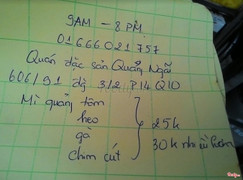 9AM - 8PM
01666021757
Quán đặc sản Quảng Ngãi
606/91 đg 3/2 P14 Q10
Mì quảng tôm
heo
gà
chim cút
25k
30k